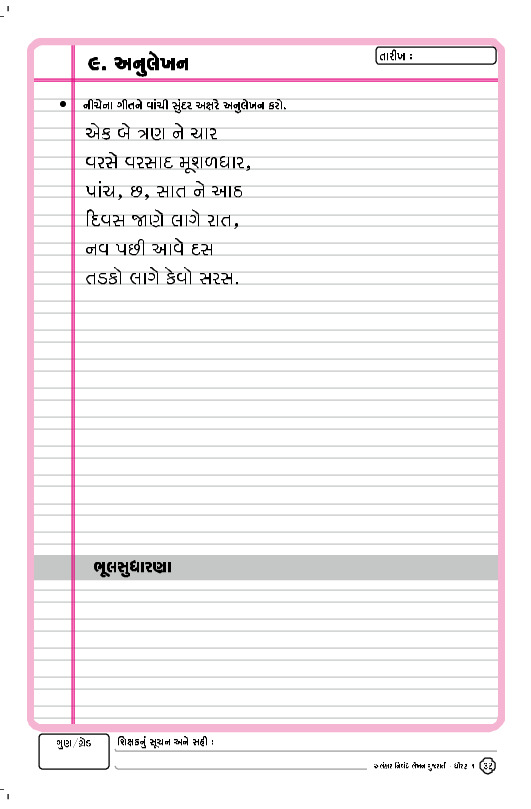 ૯. અનુલેખન
તારીખ :
• નીચેના ગીતને વાંચી સુંદર અક્ષરે અનુલેખન કરો.
એક બે ત્રણ ને ચાર
વરસે વરસાદ મૂશળધાર,
પાંચ, છ, સાત ને આઠ
દિવસ જાણે લાગે રાત,
નવ પછી આવે દસ
તડકો લાગે કેવો સરસ.
ભૂલસુધારણા
ગુણ/ગ્રેડ
શિક્ષકનું સૂચન અને સહી :
નિબંધ લેખન ગુજરાતી : ધોરણ ૧
32